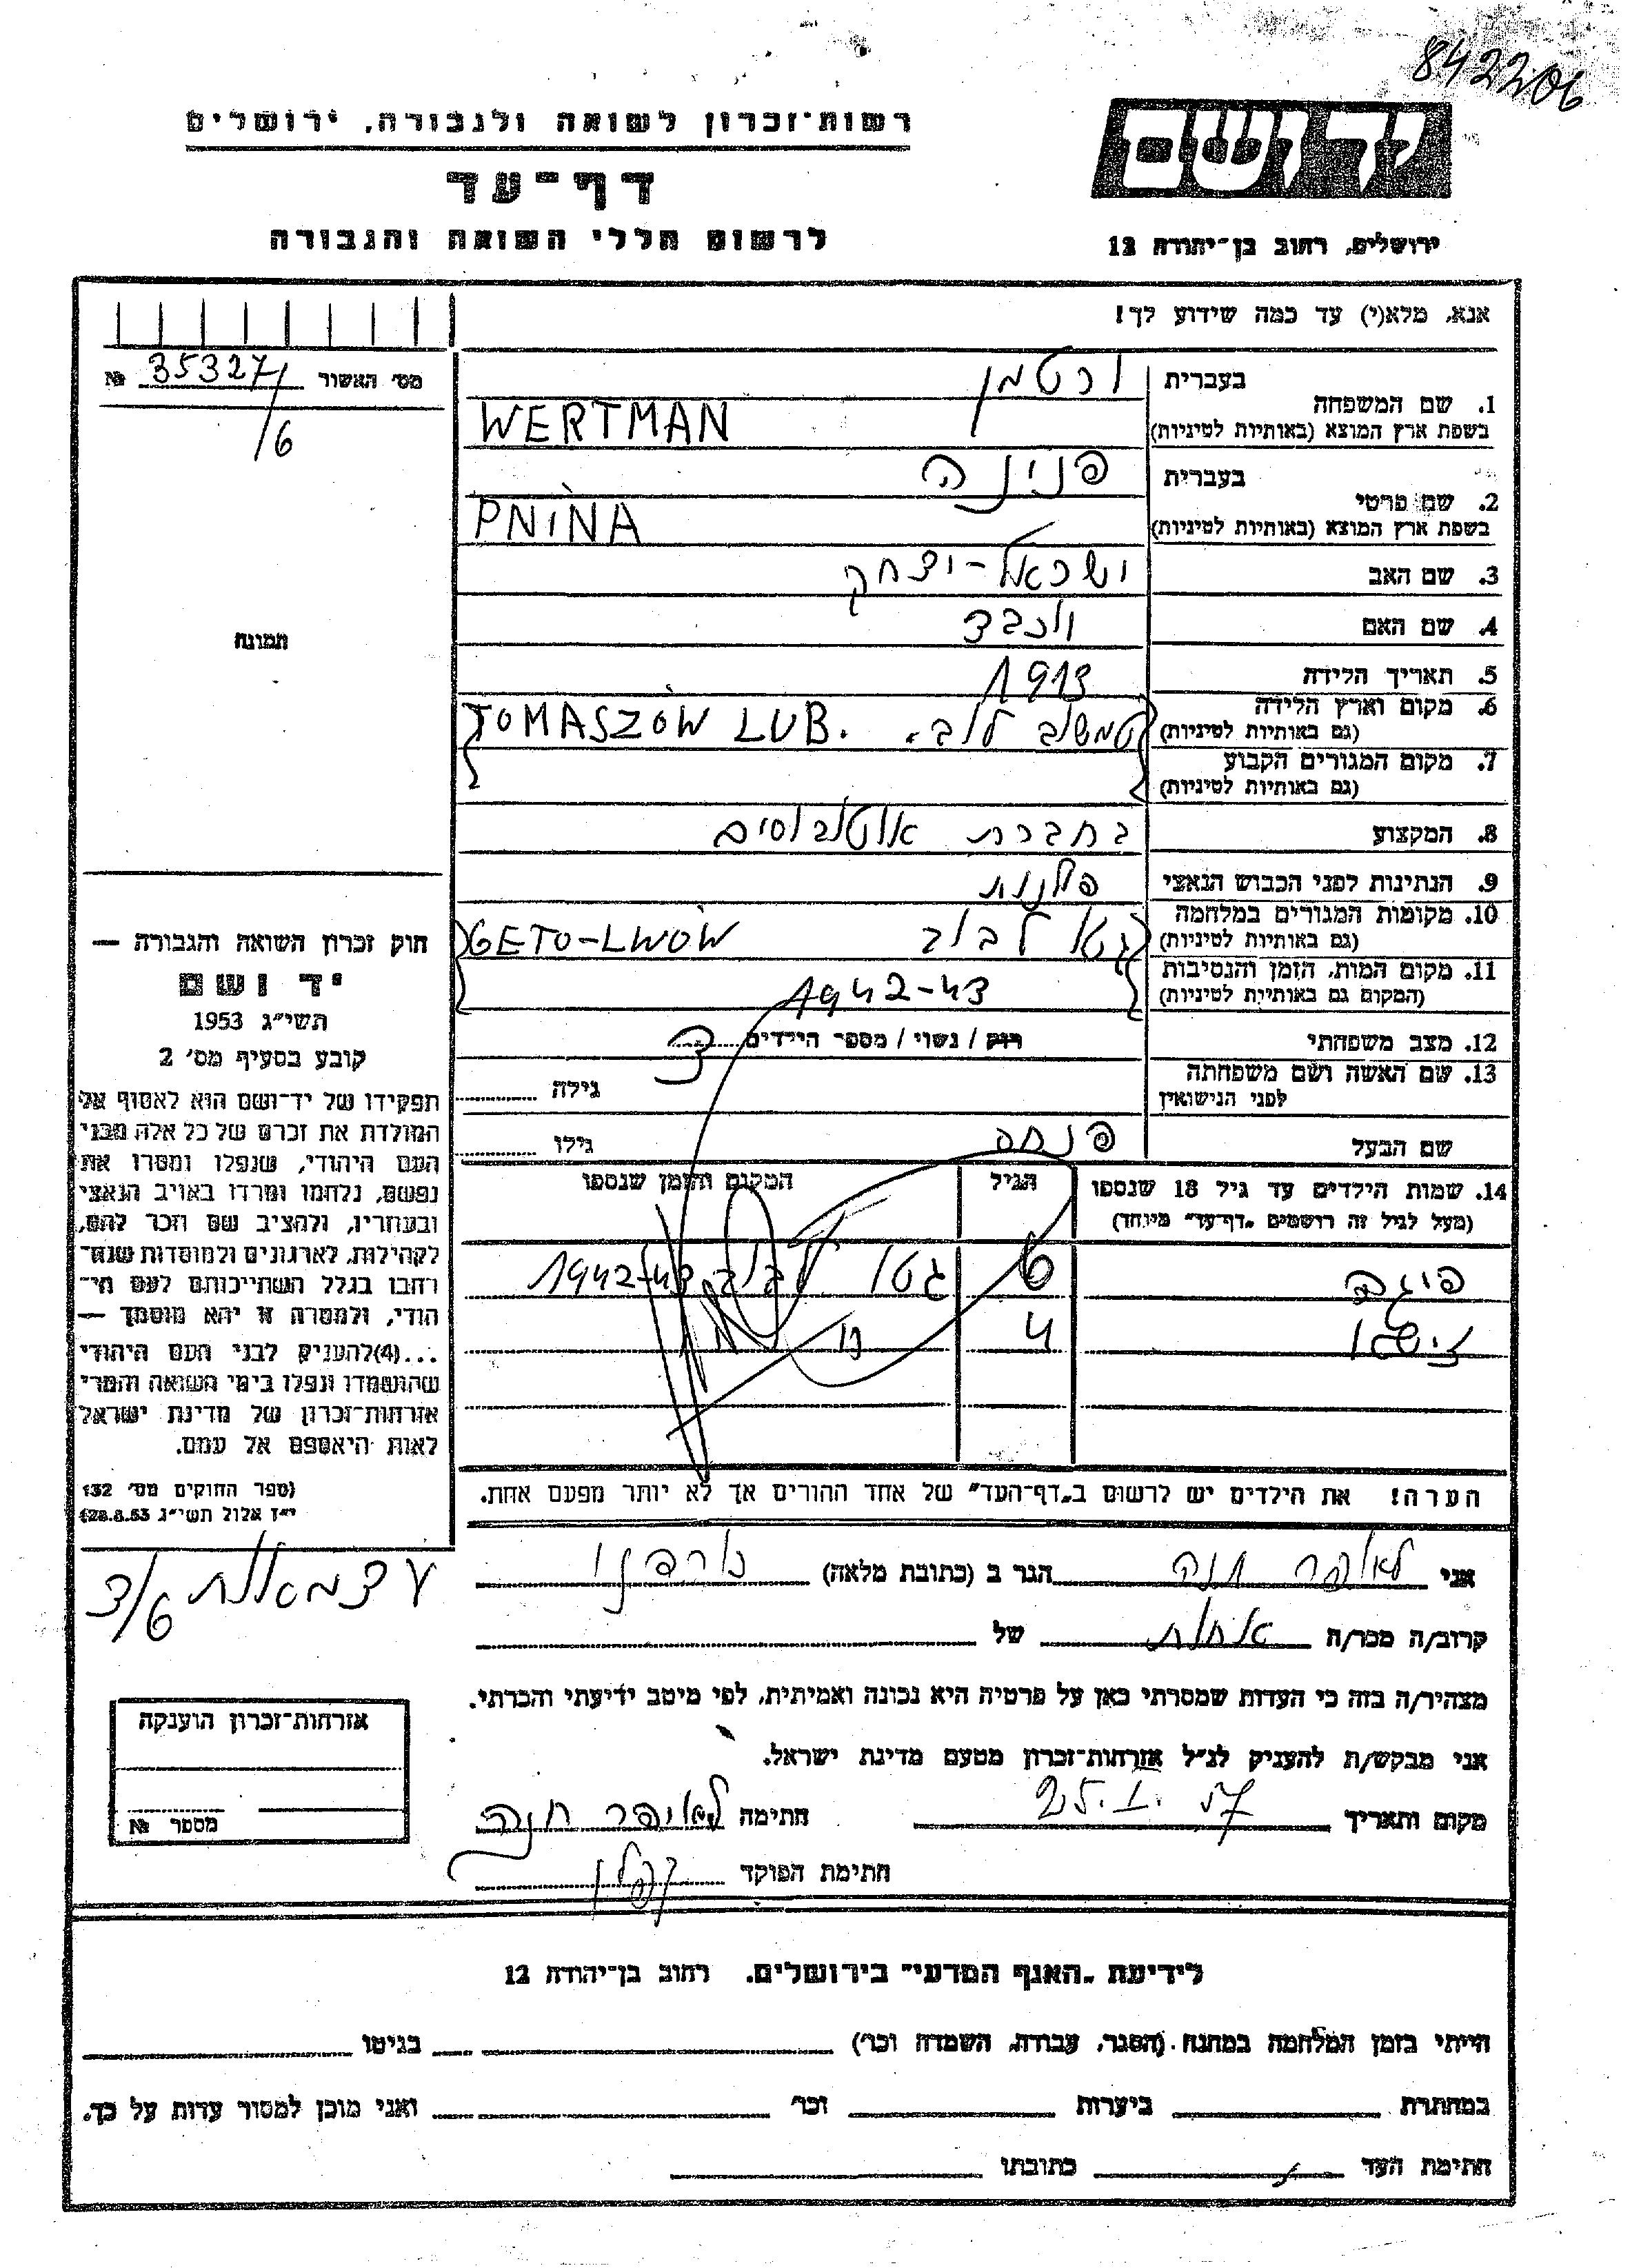 842206
רשות־זכרון לשואה ולגבורה, ירושלים
דף־עד
לרשום חללי השואה והגבורה
יד ושם
ירושלים, רחוב בן־יהודה 12
אנא, מלא(י) עד כמה שידוע לך!
מס׳ האשור 35327 №
/6
1. שם המשפחה
בעברית ורטמן
בשפת ארץ המוצא (באותיות לטיניות) WERTMAN
2. שם פרטי
בעברית פנינה
בשפת ארץ המוצא (באותיות לטיניות) PNINA
3. שם האב ישראל-יצחק
4. שם האם
5. תאריך הלידה 1913
6. מקום וארץ הלידה
(גם באותיות לטיניות) טמשוב לוב. TOMASZÓW LUB.
7. מקום המגורים הקבוע
(גם באותיות לטיניות)
8. המקצוע בחברת אוטובוסים
9. הנתינות לפני הכבוש הנאצי פולנית
10. מקומות המגורים במלחמה
(גם באותיות לטיניות) גטו לבוב GETO-LWÓW
11. מקום המות, הזמן והנסיבות
(המקום גם באותיות לטיניות) 1942-43
12. מצב משפחתי רוק / נשוי / מספר הילדים
13. שם האשה ושם משפחתה
לפני הנישואין גילה
שם הבעל פנחס גילו
14. שמות הילדים עד גיל 18 שנספו
(מעל לגיל זה רושמים „דף־עד״ מיוחד)
הגיל
המקום והזמן שנספו
פייגה 6 גטו לבוב 1942-43
4 " "
הערה! את הילדים יש לרשום ב„דף־העד״ של אחד ההורים אך לא יותר מפעם אחת.
תמונה
חוק זכרון השואה והגבורה —
יד ושם
תשי״ג 1953
קובע בסעיף מס׳ 2
תפקידו של יד־ושם הוא לאסוף אל
המולדת את זכרם של כל אלה מבני
העם היהודי, שנפלו ומסרו את
נפשם, נלחמו ומרדו באויב הנאצי
ובעוזריו, ולהציב שם וזכר להם,
לקהילות, לארגונים ולמוסדות שנח־
רבו בגלל השתייכותם לעם הי־
הודי, ולמטרה זו יהא מוסמך —
...(4)להעניק לבני העם היהודי
שהושמדו ונפלו בימי השואה והמרי
אזרחות־זכרון של מדינת ישראל
לאות היאספם אל עמם.
(ספר החוקים מס׳ 132
י״ז אלול תשי״ג 28.8.53)
אני לאופר חנה הגר ב (כתובת מלאה)
עצמאות 3/6
קרוב/ה מכר/ה אחות של
מצהיר/ה בזה כי העדות שמסרתי כאן על פרטיה היא נכונה ואמיתית, לפי מיטב ידיעתי והכרתי.
אני מבקש/ת להעניק לנ״ל אזרחות־זכרון מטעם מדינת ישראל.
מקום ותאריך 25.I.57 חתימה לאופר חנה
חתימת הפוקד קפלן
אזרחות־זכרון הוענקה
מספר №
לידיעת „האגף המדעי״ בירושלים. רחוב בן־יהודה 12
הייתי בזמן המלחמה במחנה (הסגר, עבודה, השמדה וכו׳) בגיטו
במחתרת ביערות וכו׳ ואני מוכן למסור עדות על כך.
חתימת העד כתובתו